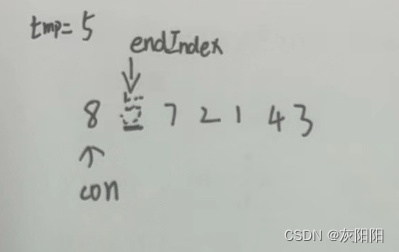 tmp= 5
endIndex
8 7 2 1 4 3
con
CSDN @灰阳阳